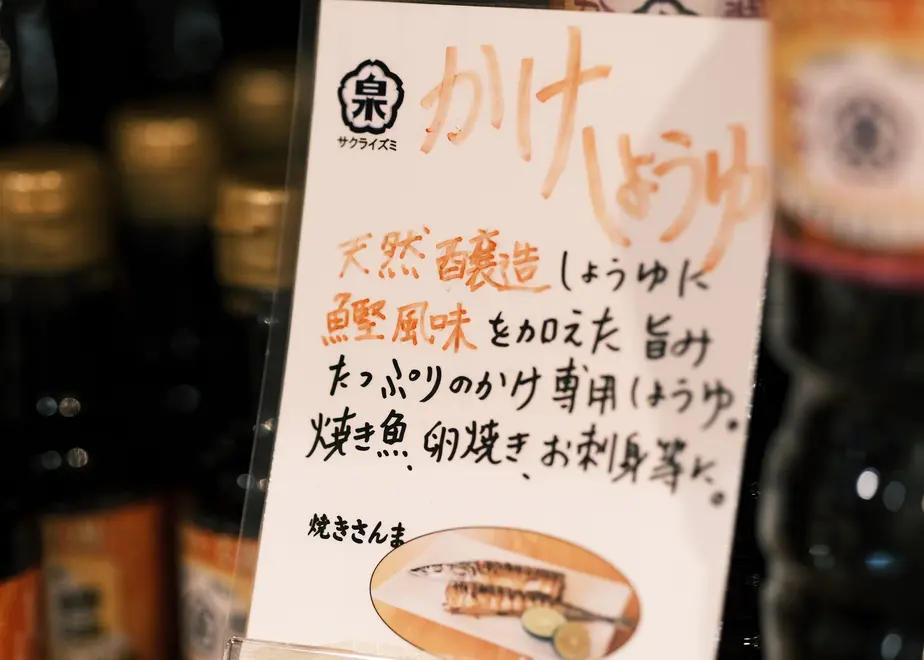 泉
サクライズミ
かけ
しょうゆ
天然醸造しょうゆに
鰹風味を加えた旨み
たっぷりのかけ専用しょうゆ。
焼き魚、卵焼き、お刺身等に。
焼きさんま